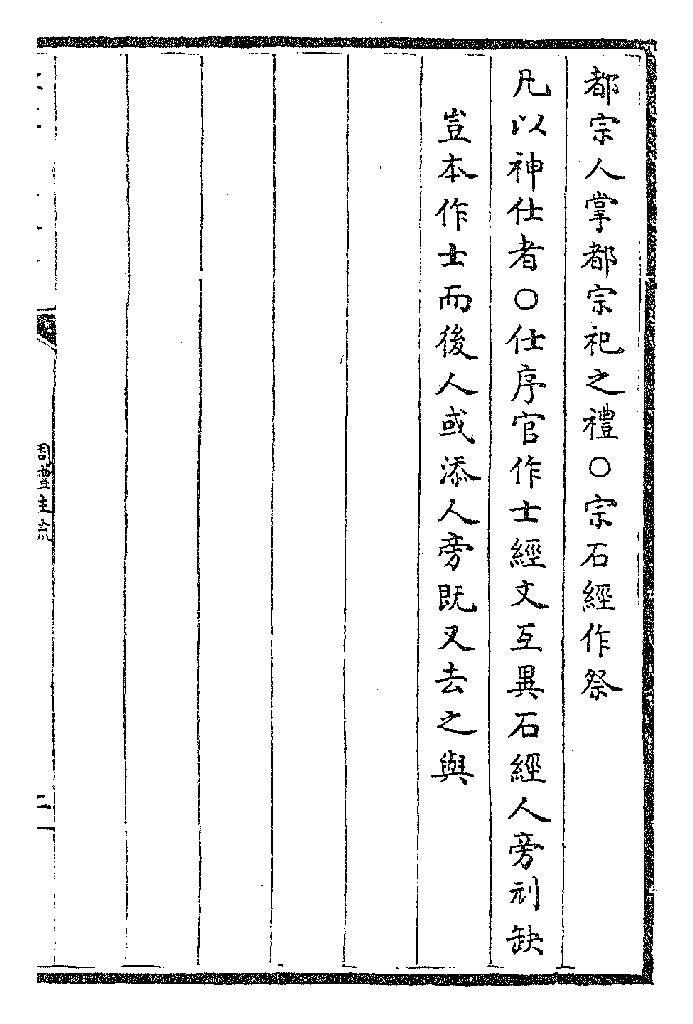 都宗人掌都宗祀之禮○宗石經作祭
凡以神仕者○仕序官作士經文互異石經人旁刓缺
豈本作士而後人或添人旁既又去之與
周禮注疏